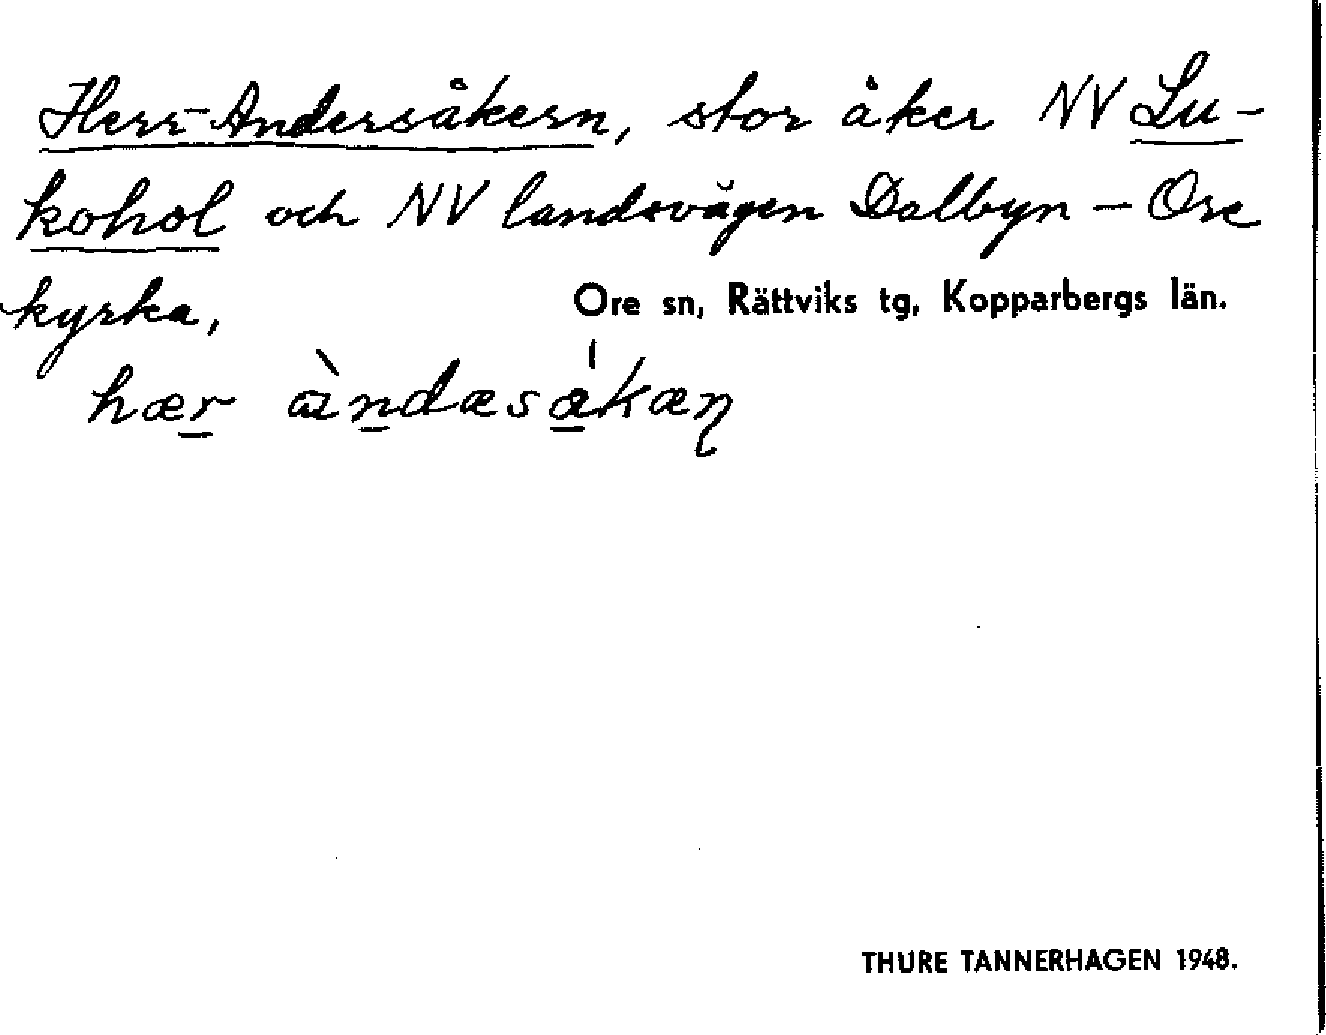 Herr-Andersåkern, stor åker NV Lu-
kohol och NV landsvägen Dalbyn – Ore
kyrka,
Ore sn, Rättviks tg, Kopparbergs län.
hær
THURE TANNERHAGEN 1948.